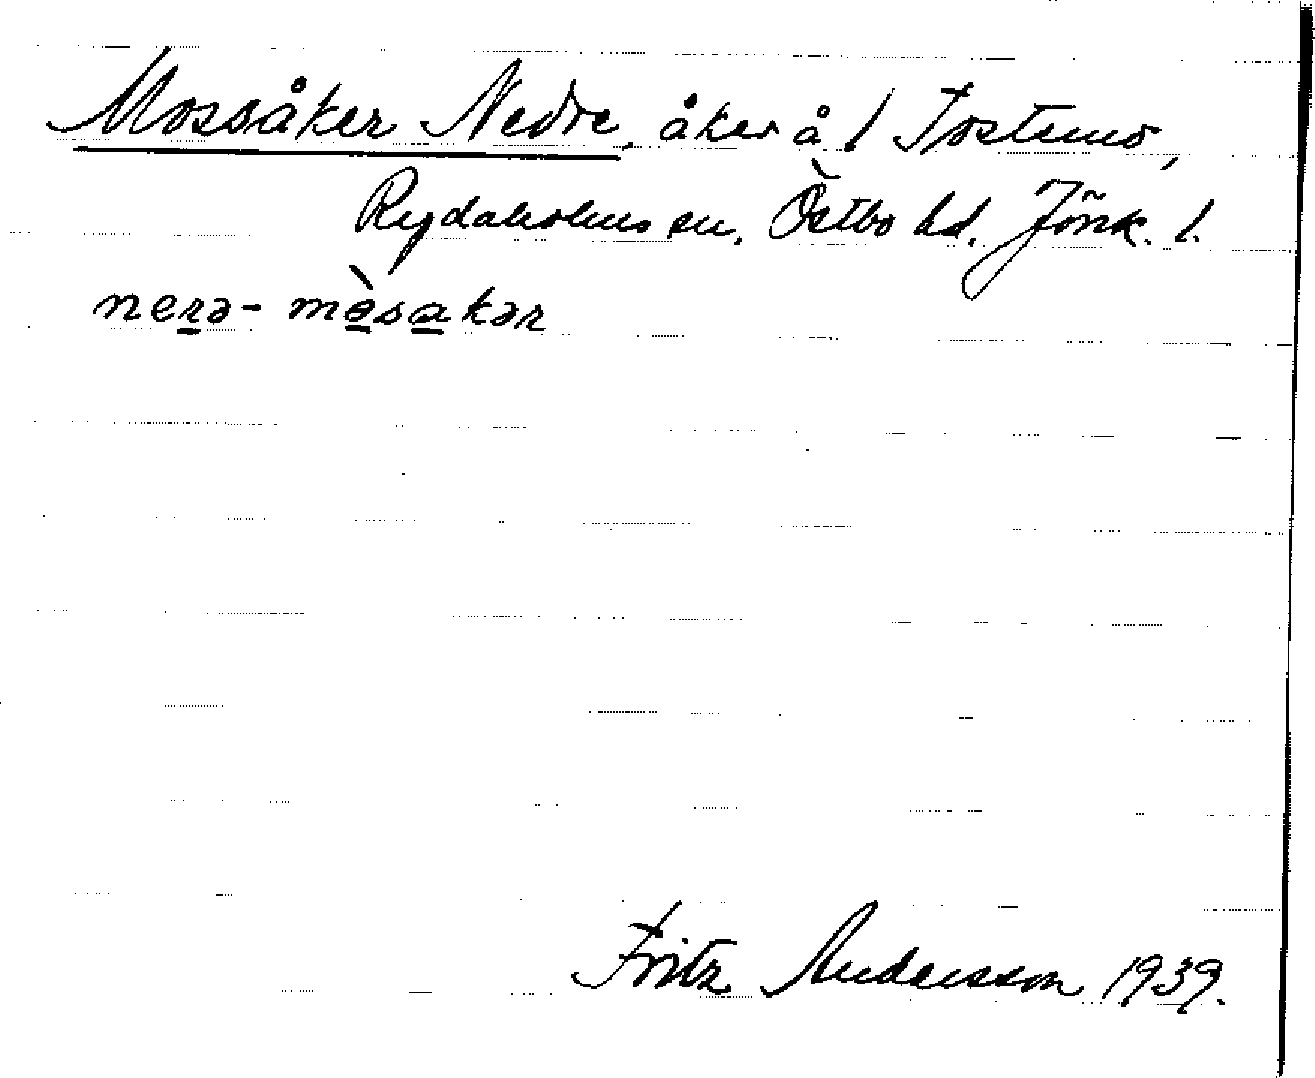 Mossåker Nedre, åker å 1 Tostemo,
Rydaholms sn, Östbo hd. Jönk. l.
nerə- mòsakər
Fritz Andersson 1939.